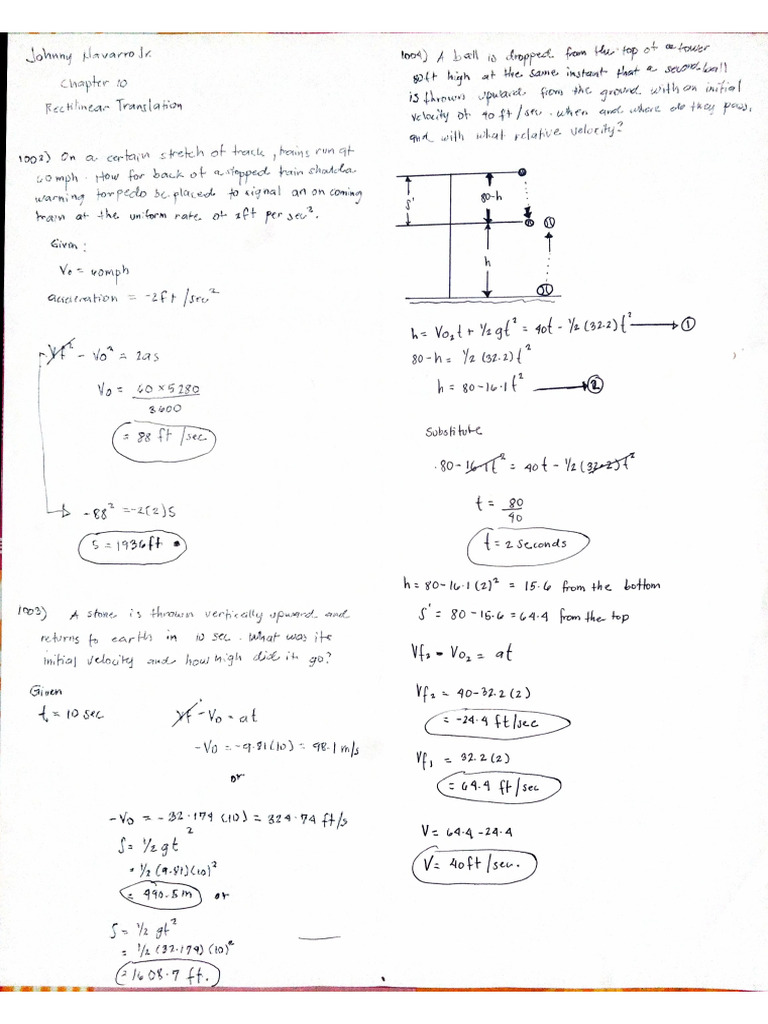 Johnny Navarro Jr.
Chapter 10
Rectilinear Translation
1002) On a certain stretch of track, trains run at
60mph. How for back of a stopped train should a
warning torpedo be placed to signal an on coming
train at the uniform rate of 2ft per sec².
Given:
Vo = 60mph
acceleration = -2ft/sec²
Vf² - Vo² = 2as
Vo = 60 x 5280
3600
= 88 ft/sec
-88² = -2(2)S
S = 1936ft
1003) A stone is thrown vertically upward and
returns to earth in 10 sec. What was its
initial velocity and how high did it go?
Given
t = 10 sec
Vf - Vo = at
-Vo = -9.81(10) = 98.1 m/s
or
-Vo = -32.174(10) = 324.74 ft/s
S = 1/2 gt²
= 1/2 (9.81)(10)²
= 490.5m or
S = 1/2 gt²
= 1/2 (32.174)(10)²
= 1608.7 ft.
1004) A ball is dropped from the top of a tower
80ft high at the same instant that a second ball
is thrown upward from the ground with an initial
velocity of 40 ft/sec. when and where do they pass,
and with what relative velocity?
S'
80-h
h
h = Vo₂t + 1/2 gt² = 40t - 1/2 (32.2)t² ①
80-h = 1/2 (32.2)t²
h = 80-16.1t² ②
Substitute
80-16.1t² = 40t - 1/2 (32.2)t²
t = 80
40
t = 2 seconds
h = 80-16.1(2)² = 15.6 from the bottom
S' = 80-15.6 = 64.4 from the top
Vf₂ - Vo₂ = at
Vf₂ = 40-32.2(2)
= -24.4 ft/sec
Vf₁ = 32.2(2)
= 64.4 ft/sec
V = 64.4-24.4
V = 40ft/sec.